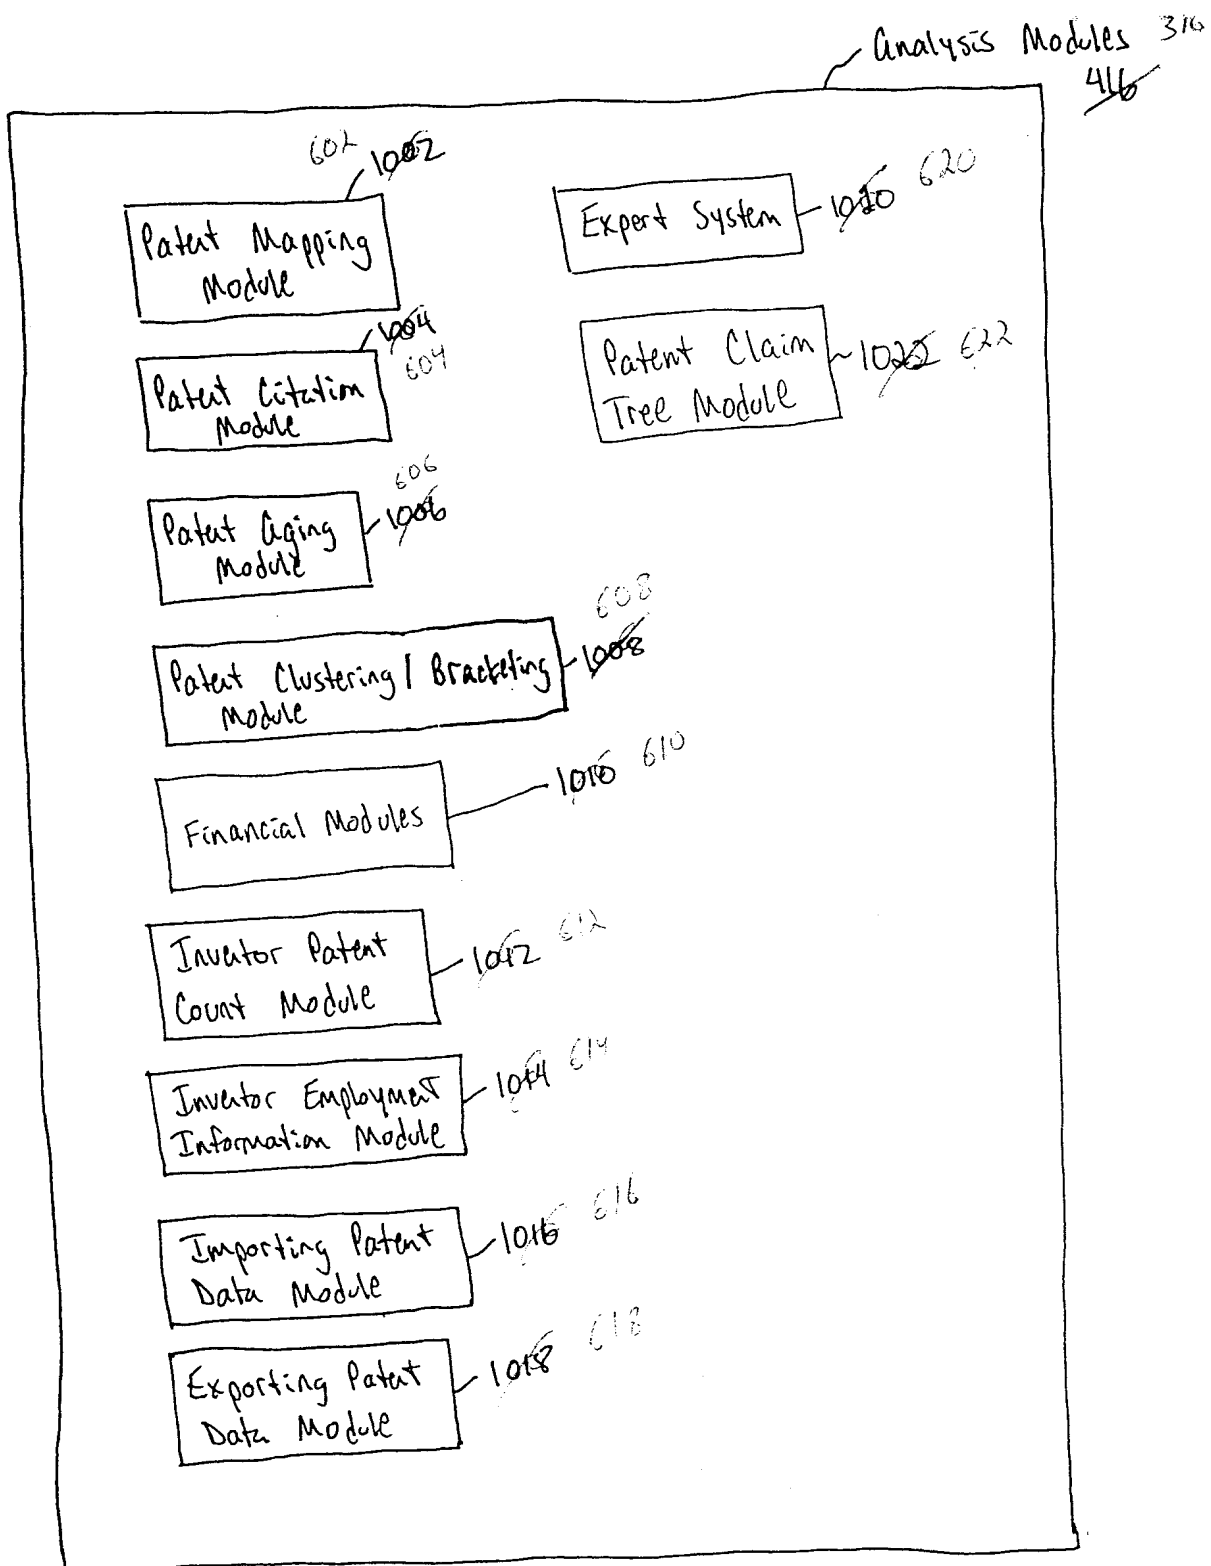 Analysis Modules 316
416
602 1002
Patent Mapping
Module
1004
604
Patent Citation
Module
606
1006
Patent Aging
Module
608
1008
Patent Clustering / Bracketing
Module
1010 610
Financial Modules
1012 612
Inventor Patent
Count Module
1014 614
Inventor Employment
Information Module
1016 616
Importing Patent
Data Module
1018 618
Exporting Patent
Data Module
Expert System 1020 620
Patent Claim
Tree Module
1022 622